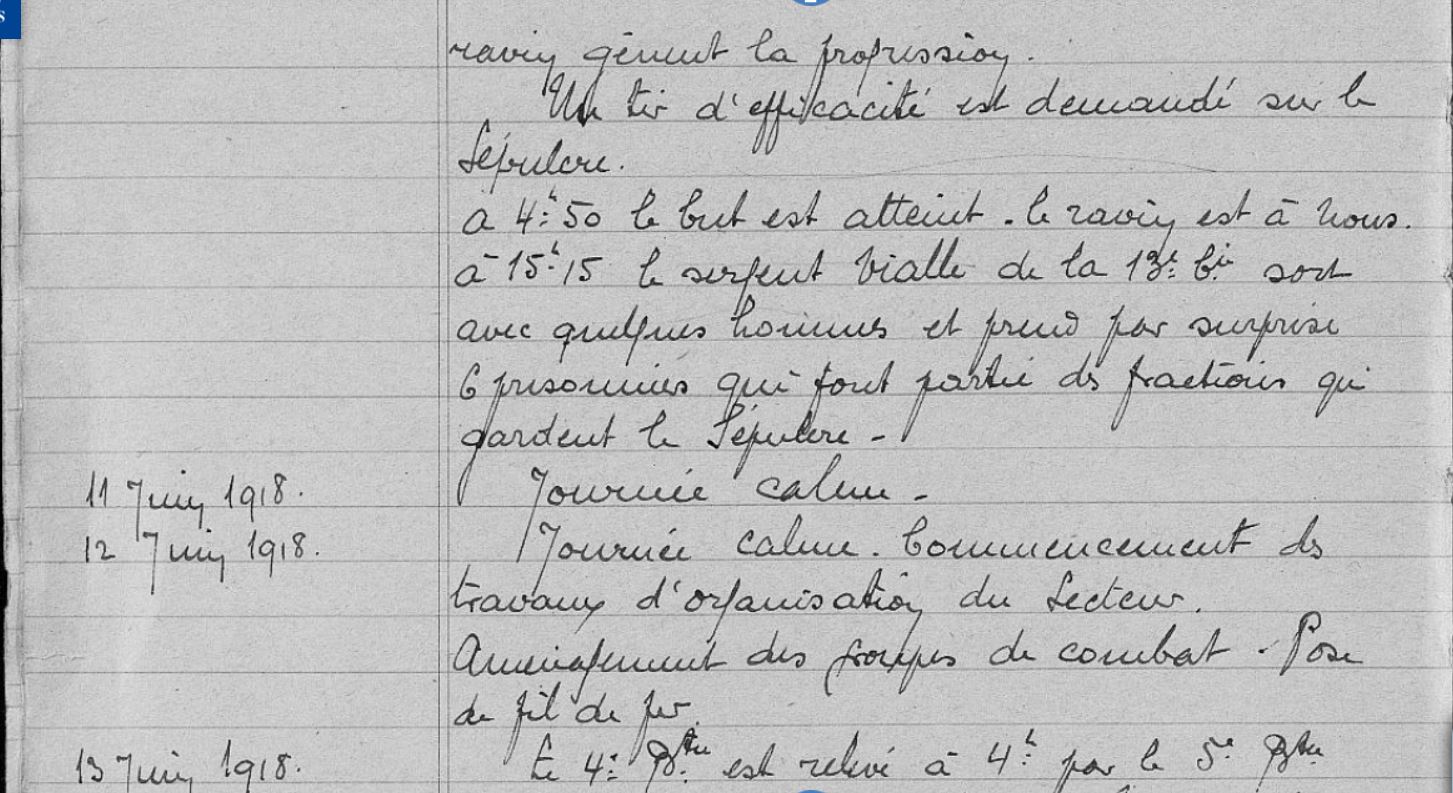 ravin gênent la progression.
Un tir d'efficacité est demandé sur le
Sépulcre.
a 4h50 le but est atteint. le ravin est à nous.
à 15h15 le sergent Vialle de la 13e Cie sort
avec quelques hommes et prend par surprise
6 prisonniers qui font partie des fractions qui
gardent le Sépulcre -
11 Juin 1918. Journée calme -
12 Juin 1918. Journée calme. Commencement des
travaux d'organisation du Secteur.
Aménagement des groupes de combat - Pose
de fil de fer.
13 Juin 1918. Le 4e Bton est relevé à 4h par le 5e Bton